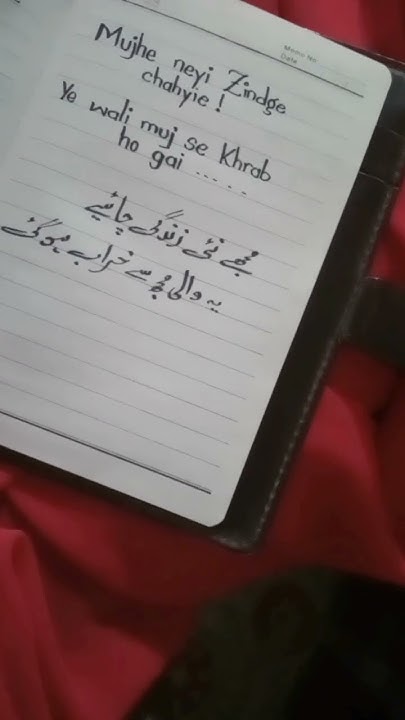 Memo No
Date
Mujhe neyi Zindge
chahyie !
Ye wali muj se Khrab
ho gai .....
مجھے نئی زندگی چاہئیے
یہ والی مجھ سے خراب ہو گئی